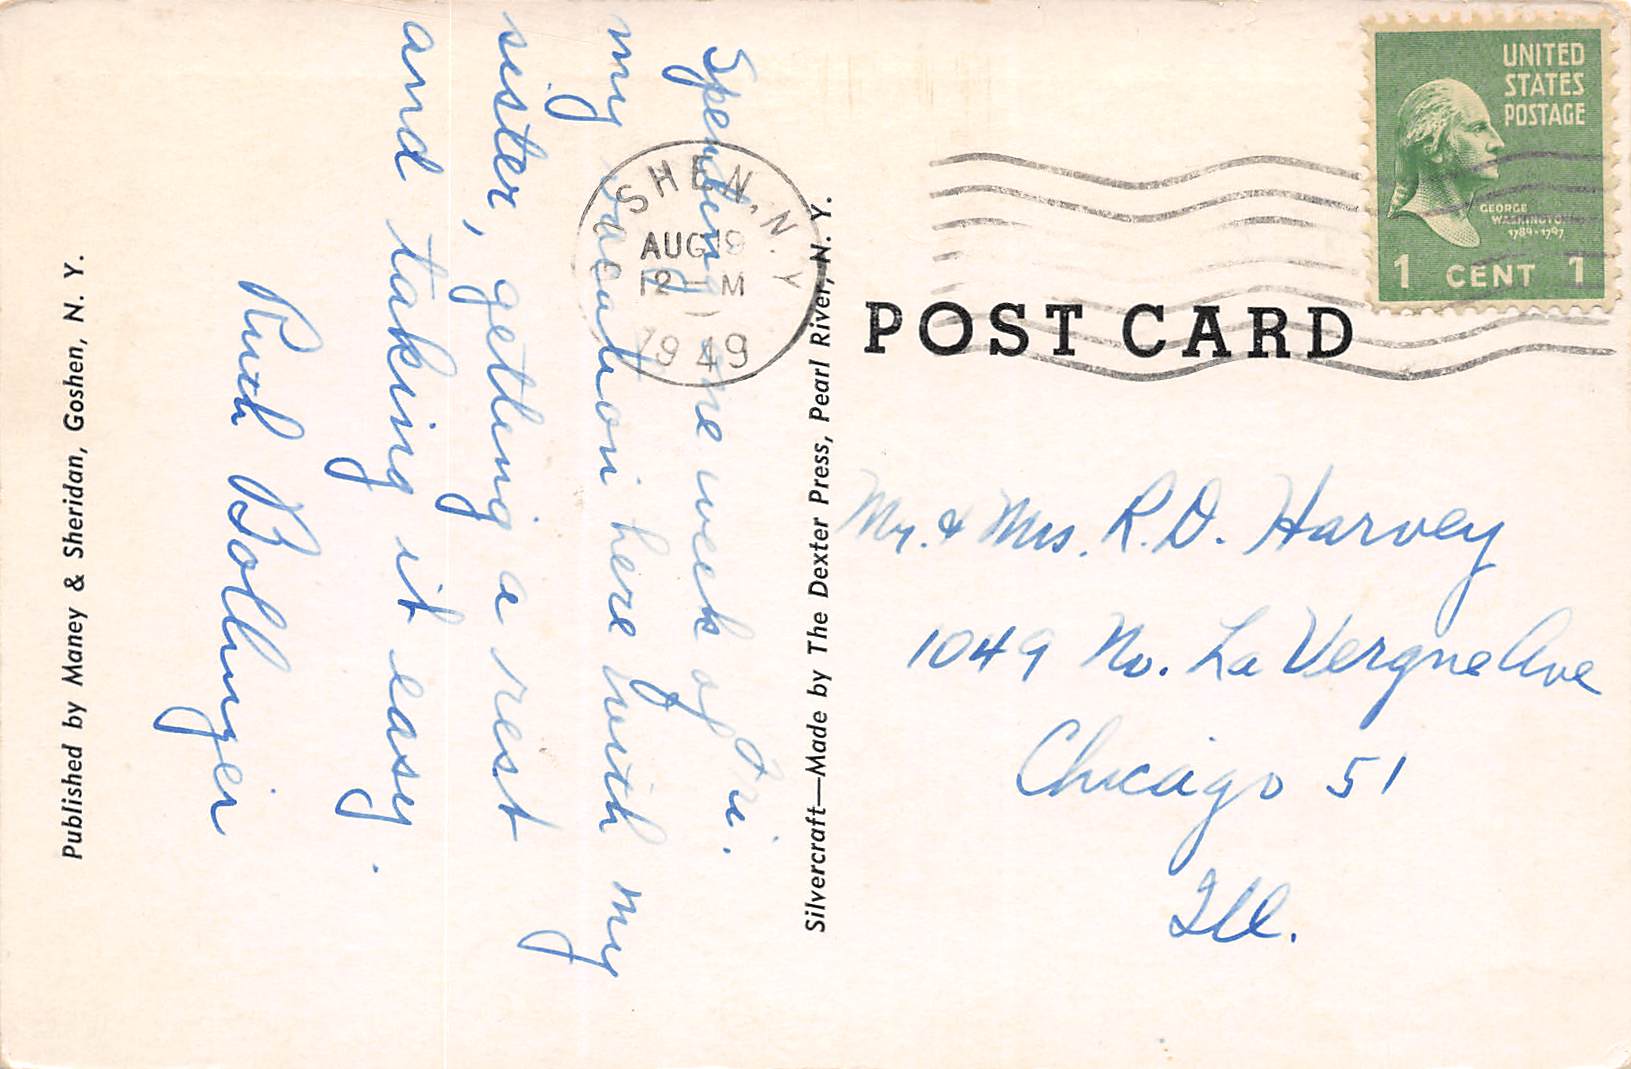 Spending one week of
my vacation here with my
sister, getting a rest
and taking it easy.
Ruth Bollinger
Published by Maney & Sheridan, Goshen, N. Y.
Silvercraft—Made by The Dexter Press, Pearl River, N. Y.
SHEN, N. Y
AUG 19
12 - M
1949
UNITED
STATES
POSTAGE
GEORGE
WASHINGTON
1789-1797
1 CENT 1
POST CARD
Mr. & Mrs. R. D. Harvey
1049 No. La Vergne Ave
Chicago 51
Ill.